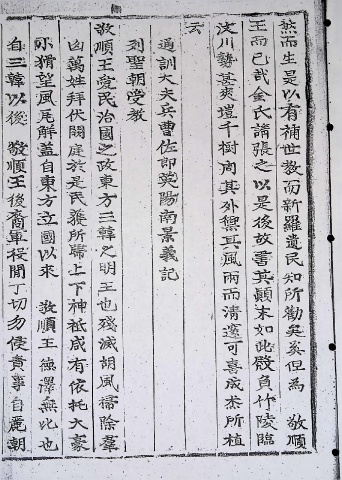 然而生是以有補世教而新羅遺民知所勸矣奚但爲 敬順
王而已哉金氏請張之以是後故書其顚末如此殿負竹陵臨
汶川勢甚爽塏千樹商其外禦其風雨而淸邃可喜咸焘所植
云
通訓大夫兵曹佐郞英陽南景羲記
列聖朝受教
敬順王愛民治國之政東方三韓之明王也殘滅胡風掃除羣
凶萬姓拜伏闕庭於是民獲所歸上下神祗咸有依托大豪
小猾望風瓦解盖自東方立國以來 敬順王德澤無比也
自三韓以後 敬順王後裔軍役閒丁切勿使責事自麗朝